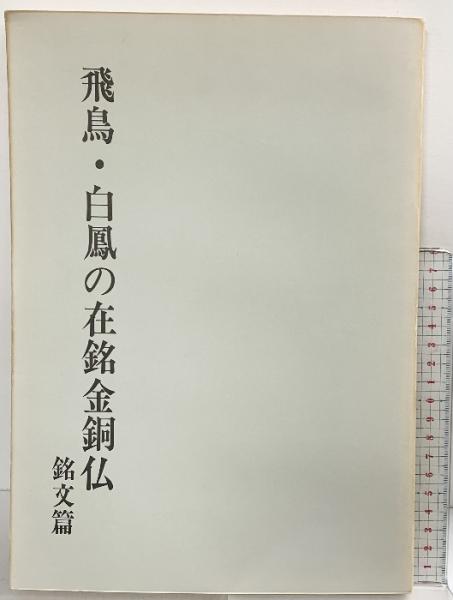 飛鳥・白鳳の在銘金銅仏
銘文篇